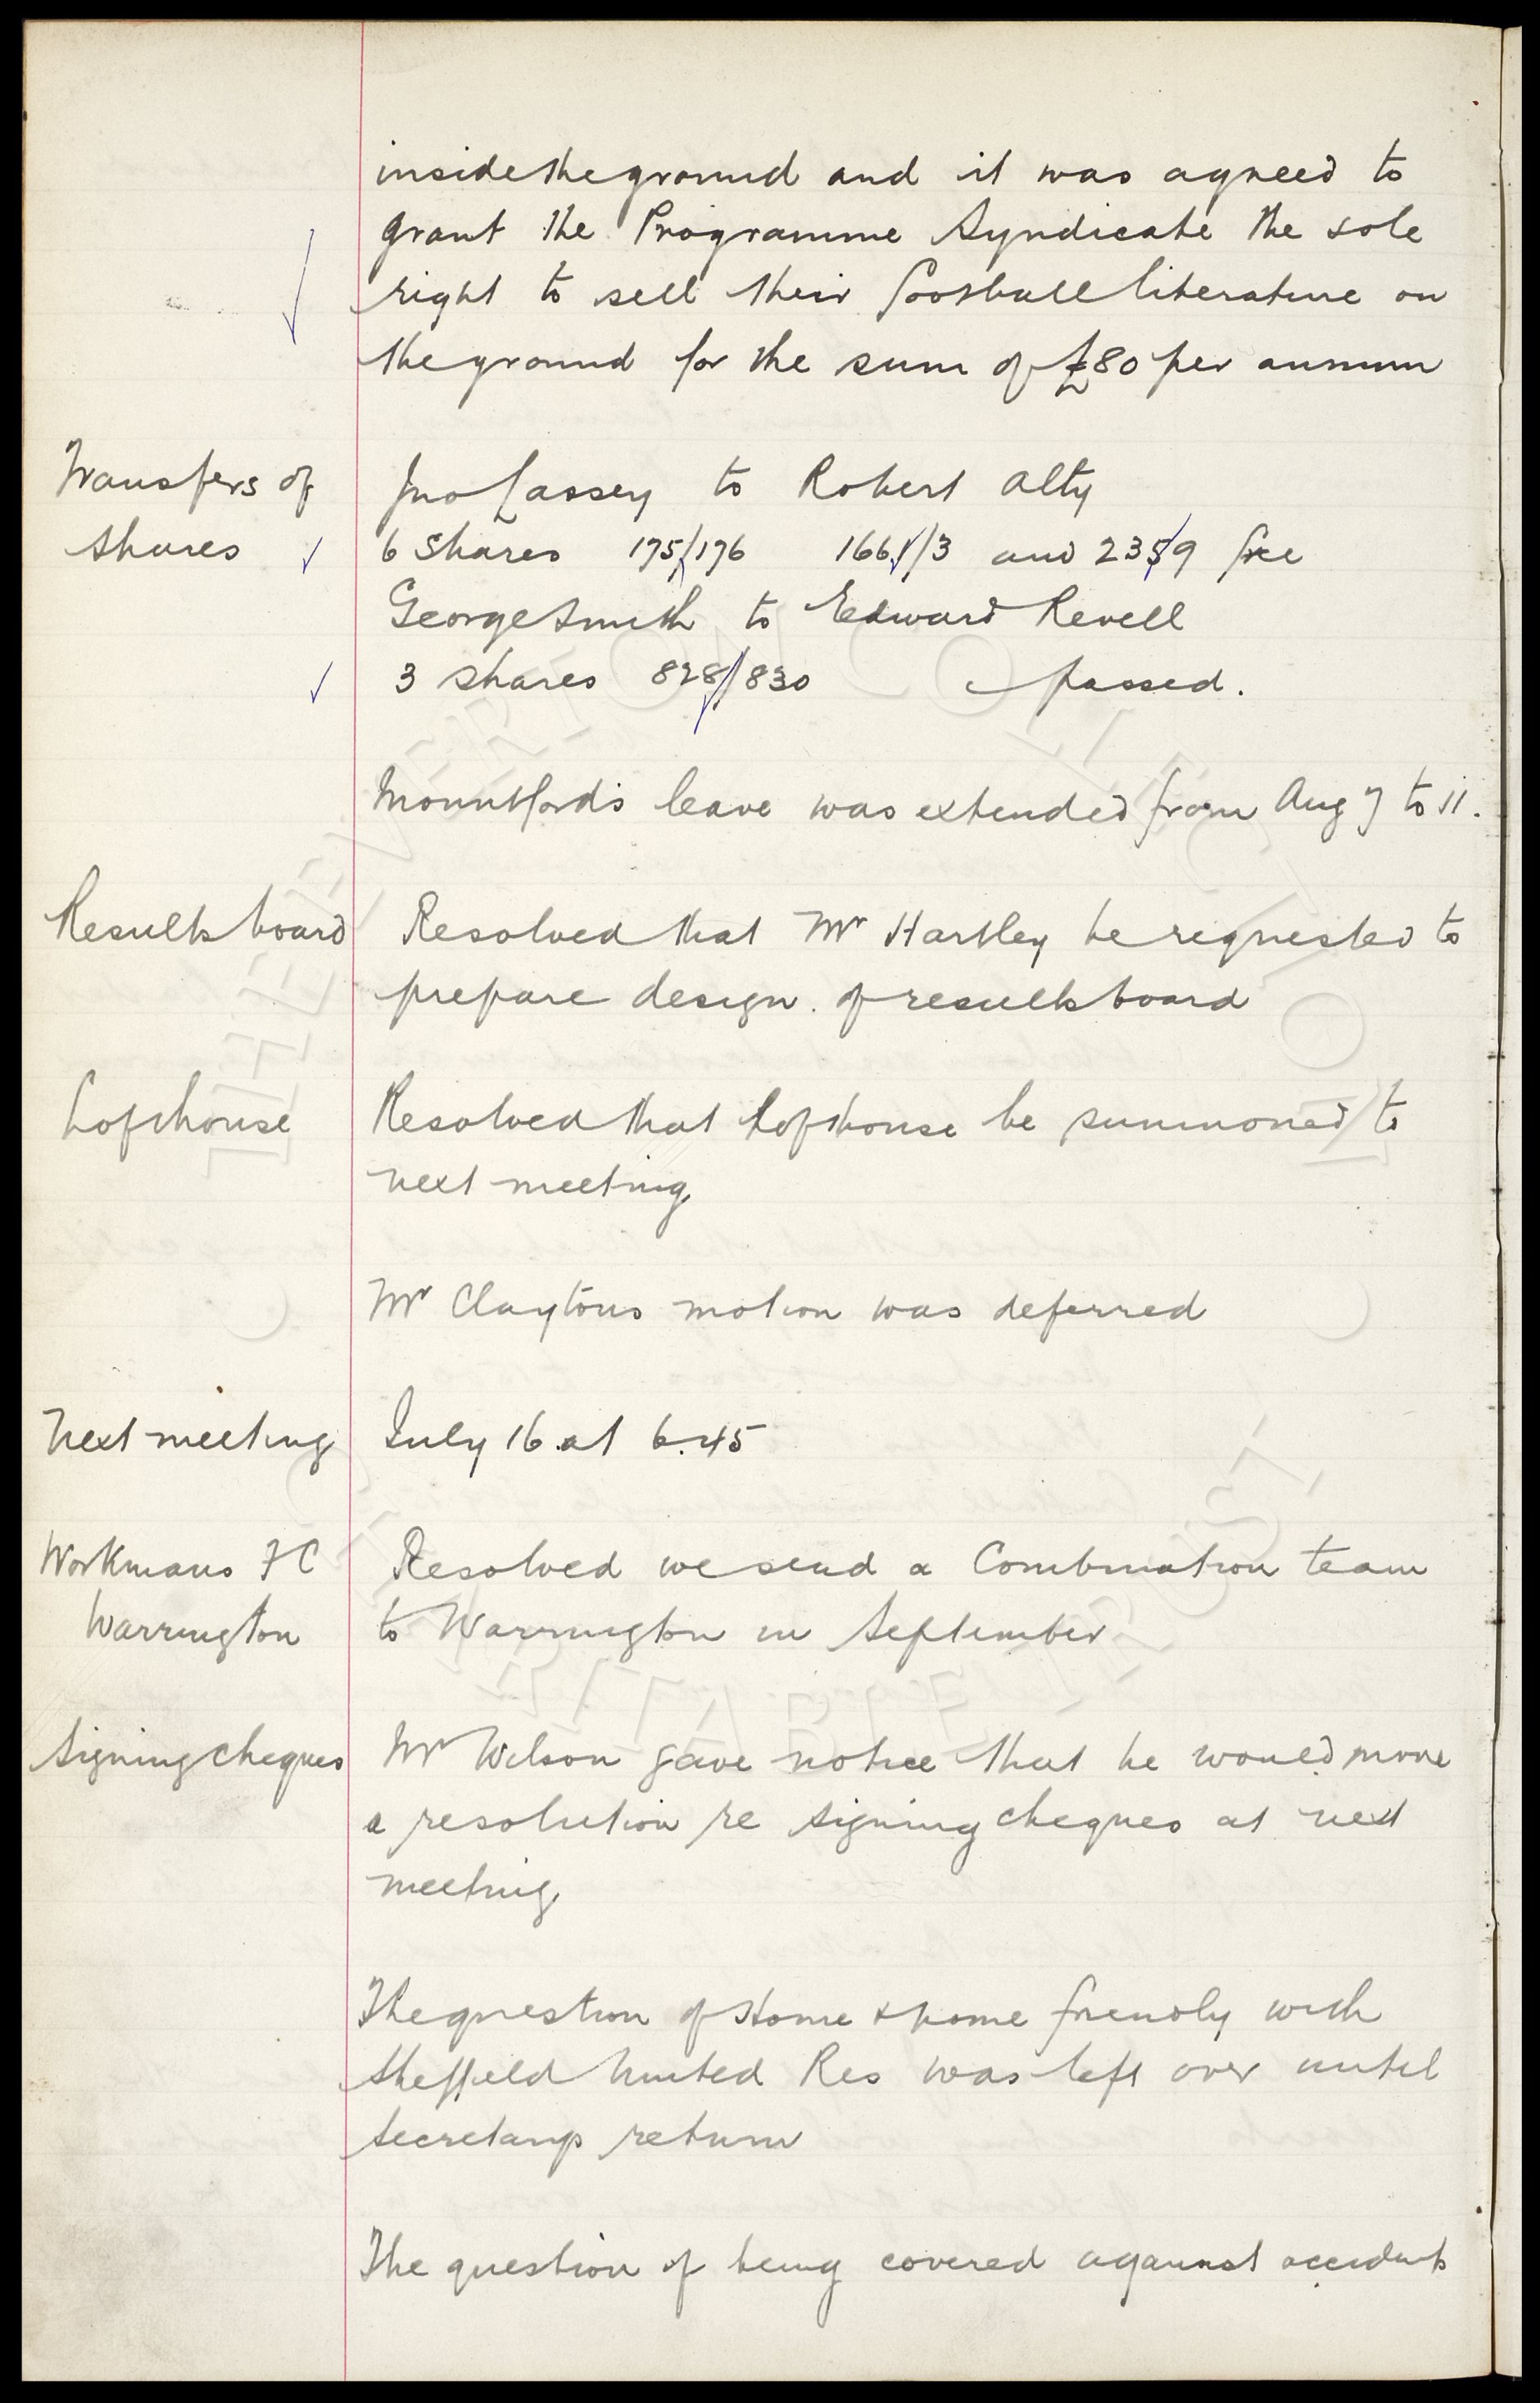 inside the ground and it was agreed to
grant the Programme Syndicate the sole
right to sell their football literature on
the ground for the sum of £80 per annum
Transfers of
shares
Jno Cassey to Robert Alty
6 Shares 175/176 1661/3 and 2359 free
George Smith to Edward Revell
3 shares 828/830 passed.
Mountford's leave was extended from Aug 7 to 11.
Results board
Resolved that Mr Hartley be requested to
prepare design of results board
Lofthouse
Resolved that Lofthouse be summoned to
next meeting
Mr Claytons motion was deferred
Next meeting
July 16 at 6.45
Workmans FC
Warrington
Resolved we send a Combination team
to Warrington in September
Signing cheques
Mr Wilson gave notice that he would move
a resolution re signing cheques at next
meeting
The question of Home & home friendly with
Sheffield United Res was left over until
Secretarys return
The question of being covered against accidents
THE EVERTON COLLECTION
CHARITABLE TRUST